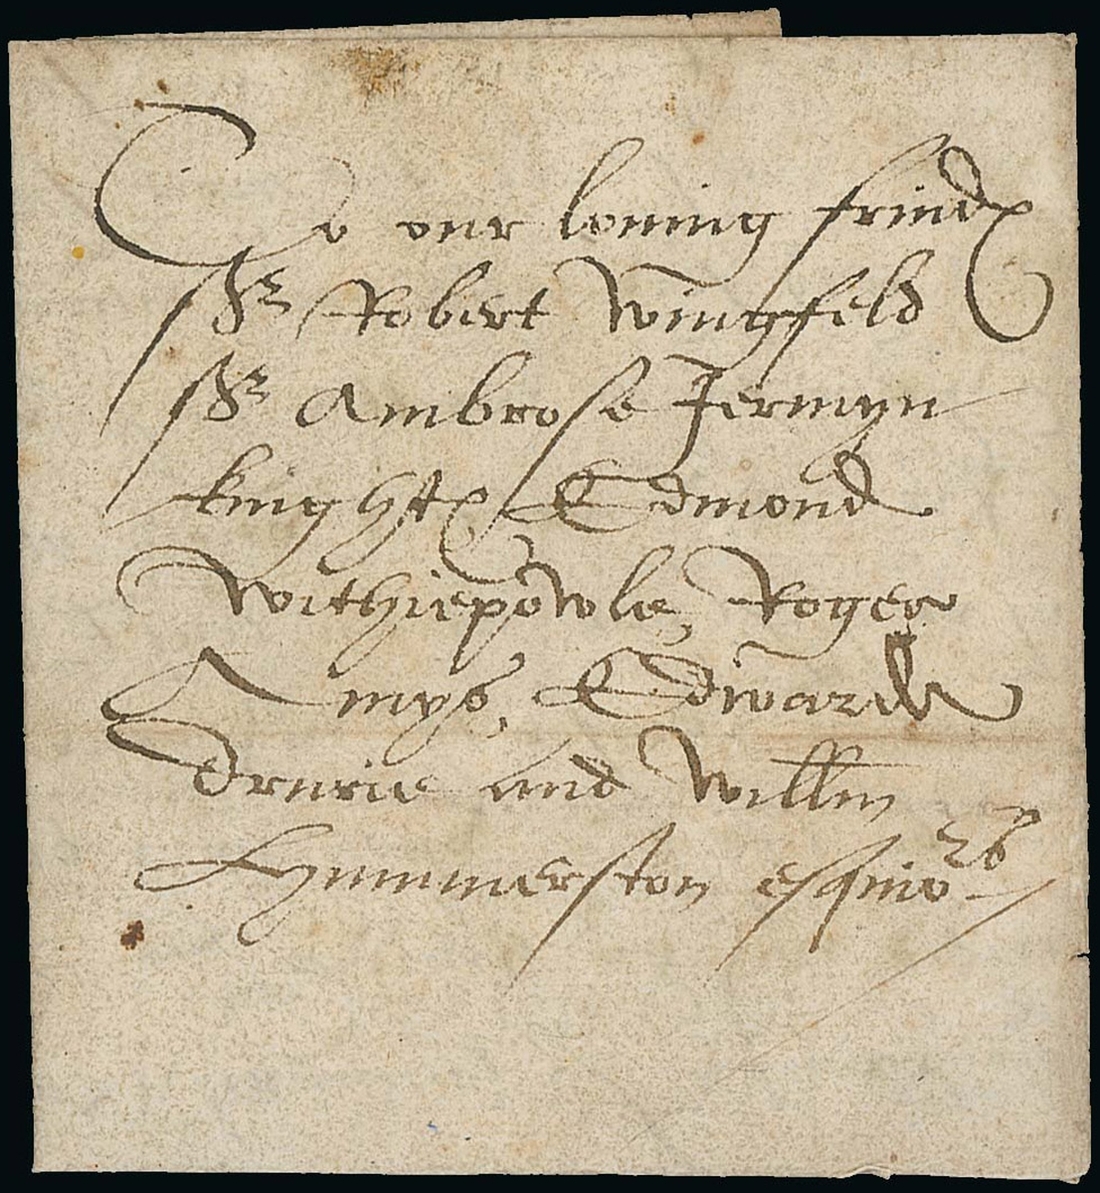 To our loving frindes
Sr Robert Wingfeld
Sr Ambrose Jermyn
knightes Edmond
Withiepowle, Roger
Amys, Edward
Drurie and Willm
Hymmerston esquiors